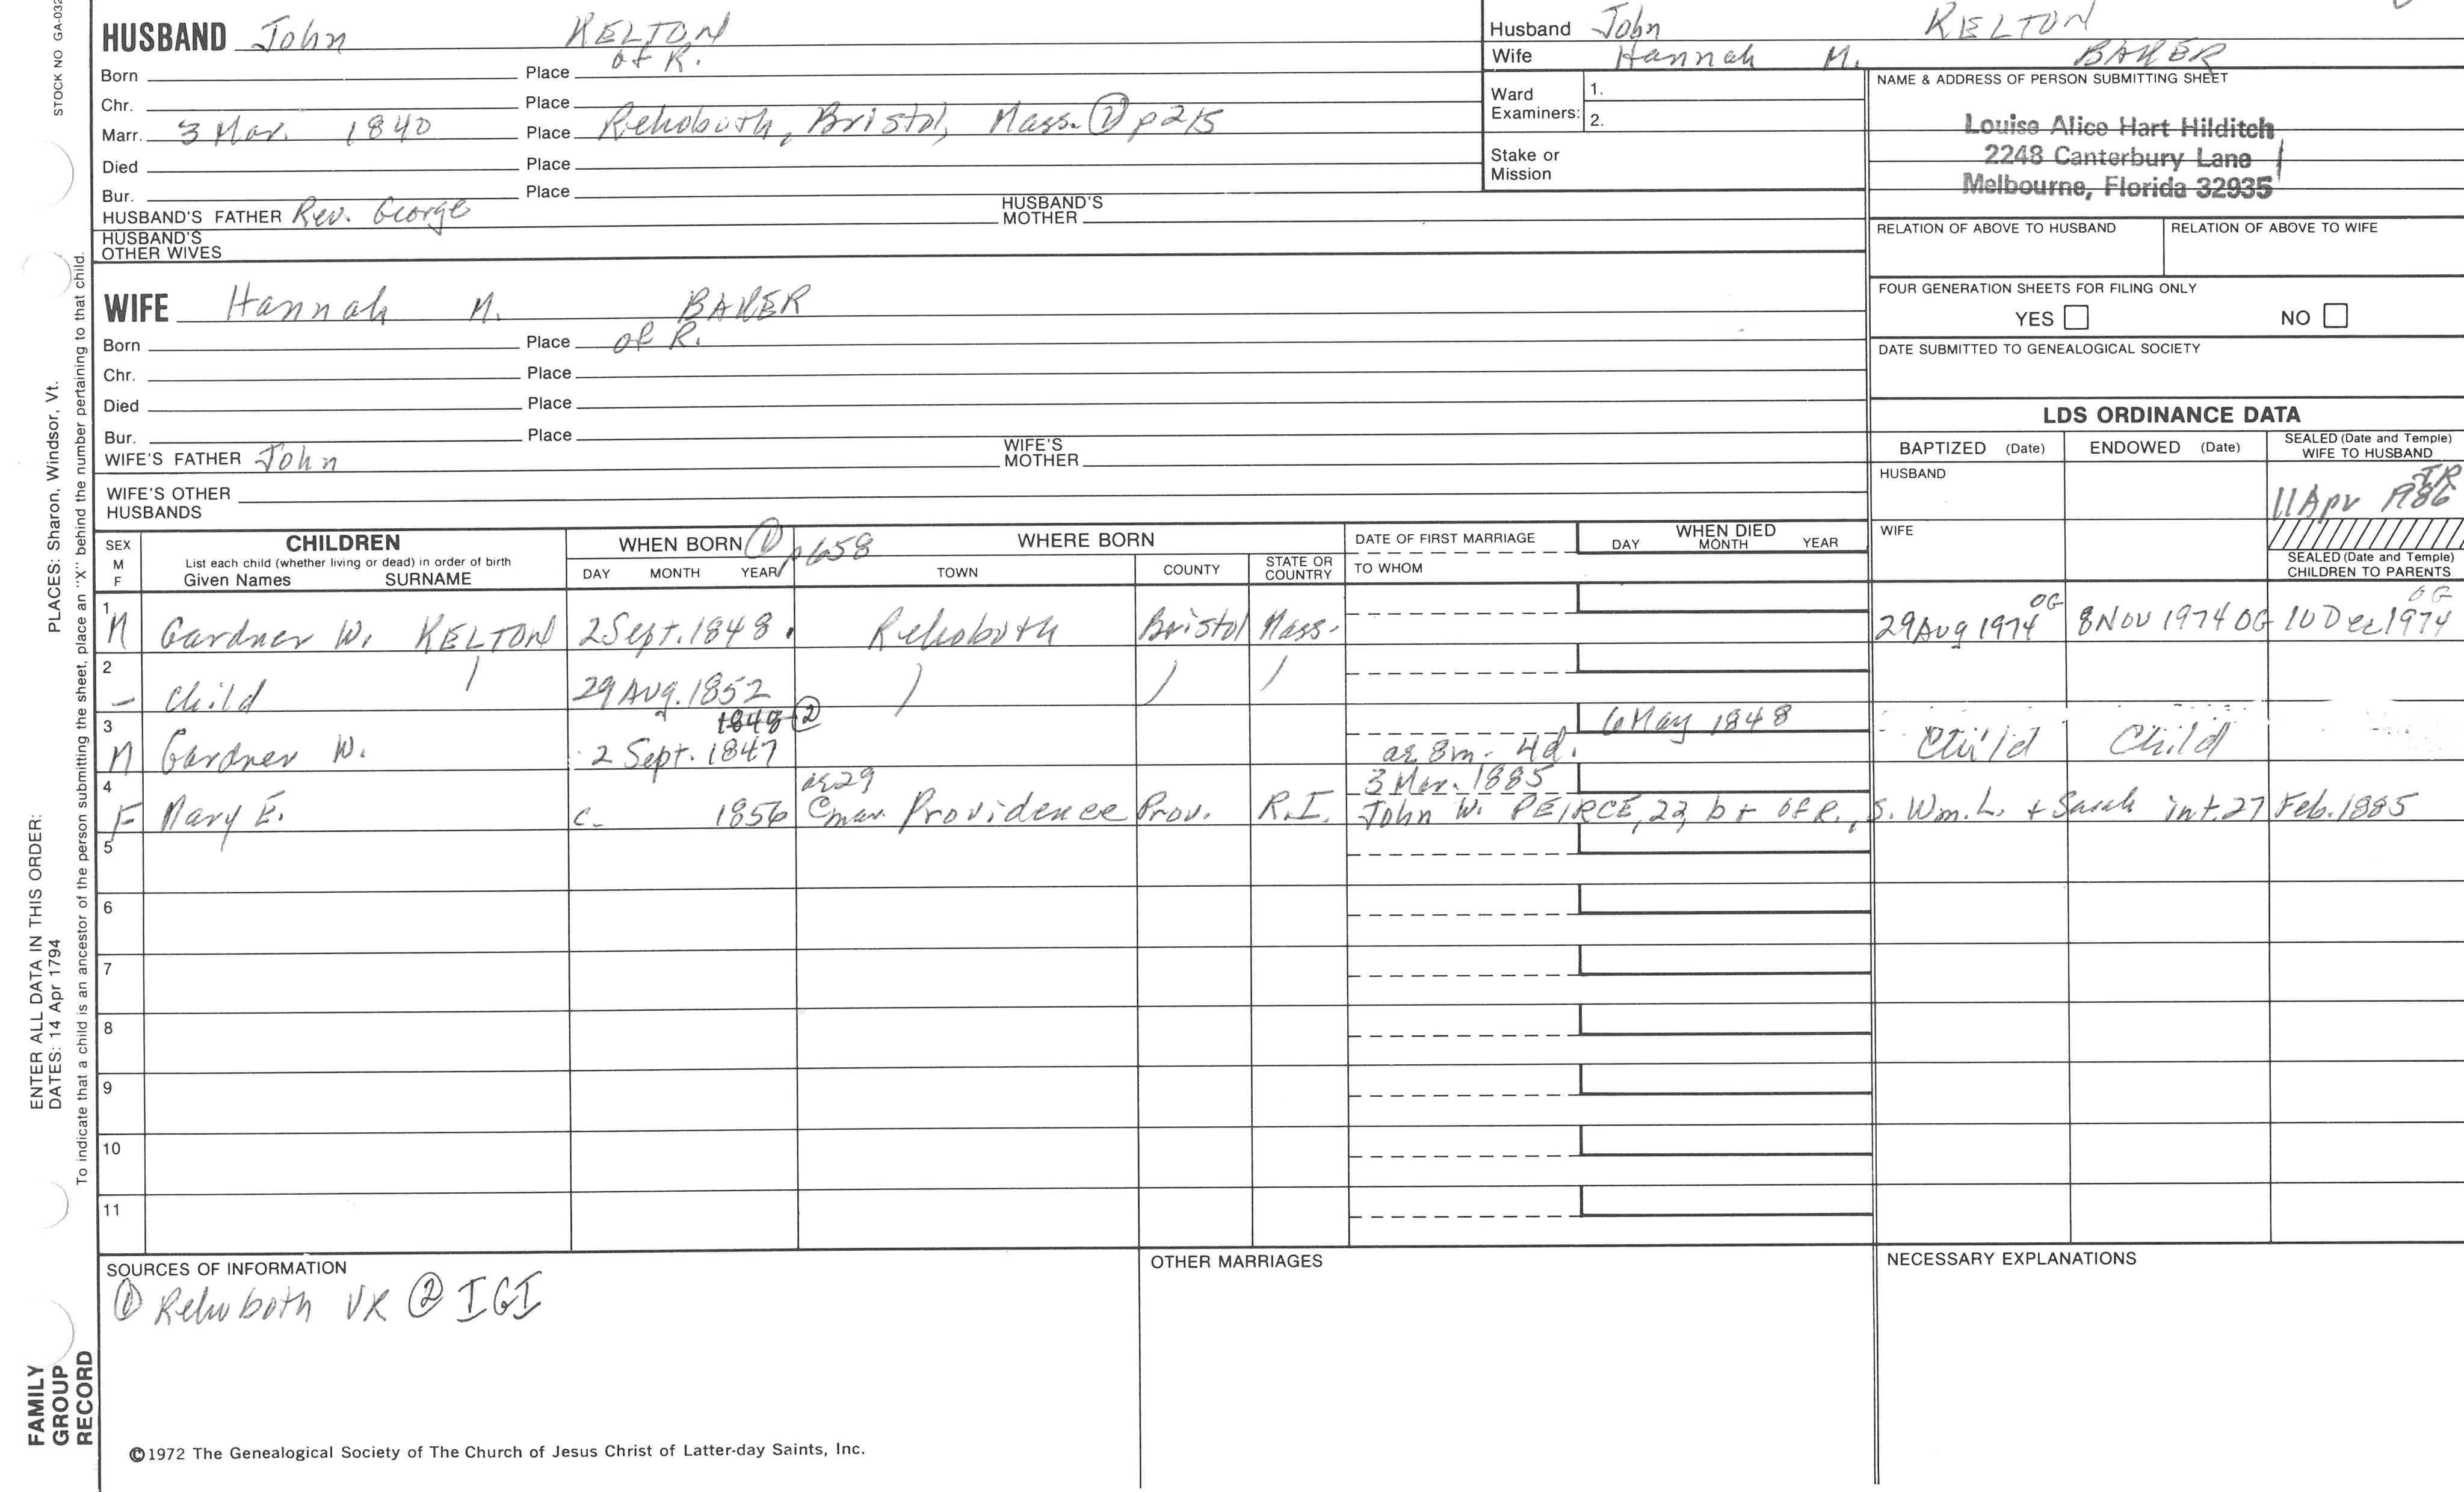 STOCK NO GA-032
HUSBAND John KELTON
Born Place of R.
Chr. Place
Marr. 3 Mar. 1840 Place Rehoboth, Bristol, Mass. ① p215
Died Place
Bur. Place
HUSBAND'S FATHER Rev. George HUSBAND'S MOTHER
HUSBAND'S OTHER WIVES
WIFE Hannah M. BAKER
Born Place of R.
Chr. Place
Died Place
Bur. Place
WIFE'S FATHER John WIFE'S MOTHER
WIFE'S OTHER HUSBANDS
Husband John KELTON
Wife Hannah M. BAKER
Ward Examiners: 1.
2.
Stake or Mission
NAME & ADDRESS OF PERSON SUBMITTING SHEET
Louise Alice Hart Hilditch
2248 Canterbury Lane
Melbourne, Florida 32935
RELATION OF ABOVE TO HUSBAND RELATION OF ABOVE TO WIFE
FOUR GENERATION SHEETS FOR FILING ONLY
YES NO
DATE SUBMITTED TO GENEALOGICAL SOCIETY
LDS ORDINANCE DATA
BAPTIZED (Date) ENDOWED (Date) SEALED (Date and Temple) WIFE TO HUSBAND
HUSBAND 11 Apr 1986
WIFE
SEALED (Date and Temple) CHILDREN TO PARENTS
SEX M F
CHILDREN
List each child (whether living or dead) in order of birth
Given Names SURNAME
WHEN BORN ① p658
DAY MONTH YEAR
WHERE BORN
TOWN COUNTY STATE OR COUNTRY
DATE OF FIRST MARRIAGE
TO WHOM
WHEN DIED
DAY MONTH YEAR
1 M Gardner W. KELTON 2 Sept. 1848. Rehoboth Bristol Mass. 29 Aug 1974 OG 8 NOV 1974 OG 10 Dec 1974 OG
2 – Child 29 Aug. 1852
3 M Gardner W. 1848 ② 2 Sept. 1847 6 May 1848 ae 8m. 4d. Child Child
4 F Mary E. c. 1856 ae 29 Providence Prov. R.I. 3 Mar. 1885
John W. PEIRCE, 23, b + of R., S. Wm. L. + Sarah int. 27 Feb. 1885
5
6
7
8
9
10
11
SOURCES OF INFORMATION
① Rehoboth VR ② IGI
OTHER MARRIAGES
NECESSARY EXPLANATIONS
©1972 The Genealogical Society of The Church of Jesus Christ of Latter-day Saints, Inc.
PLACES: Sharon, Windsor, Vt.
To indicate that a child is an ancestor of the person submitting the sheet, place an "X" behind the number pertaining to that child.
ENTER ALL DATA IN THIS ORDER:
DATES: 14 Apr 1794
FAMILY
GROUP
RECORD